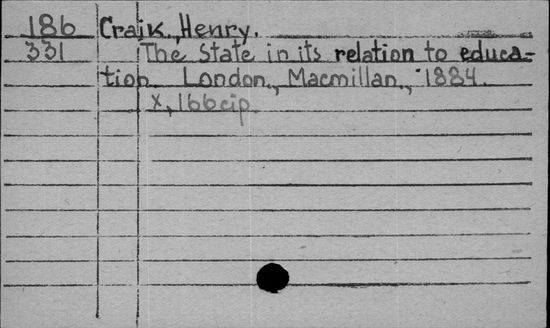 186 Craik, Henry.
331 The State in its relation to educa-
tion. London., Macmillan., 1884.
x, 166 cip